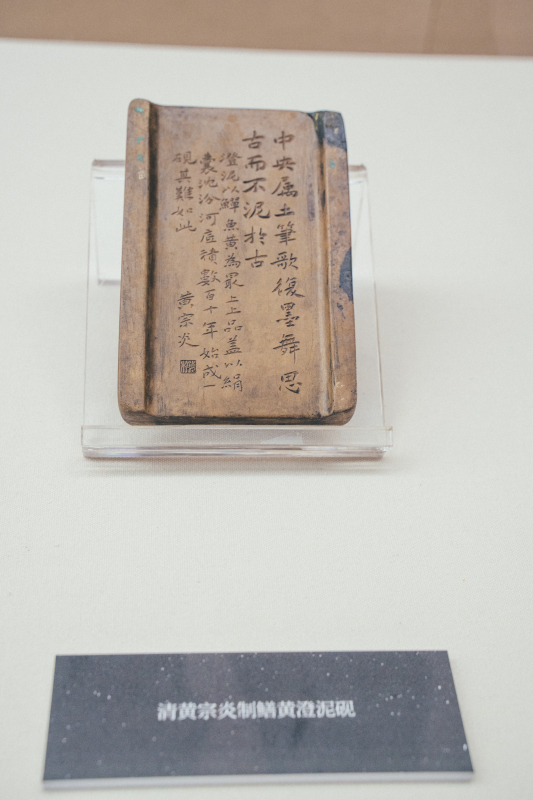 中央属土筆歌復墨舞思
古而不泥於古
澄泥以鱓魚黄為最上上品蓋以絹
囊沈汾河底積數百十年始成一
硯其難如此
黄宗炎
清黄宗炎制鳝黄澄泥砚